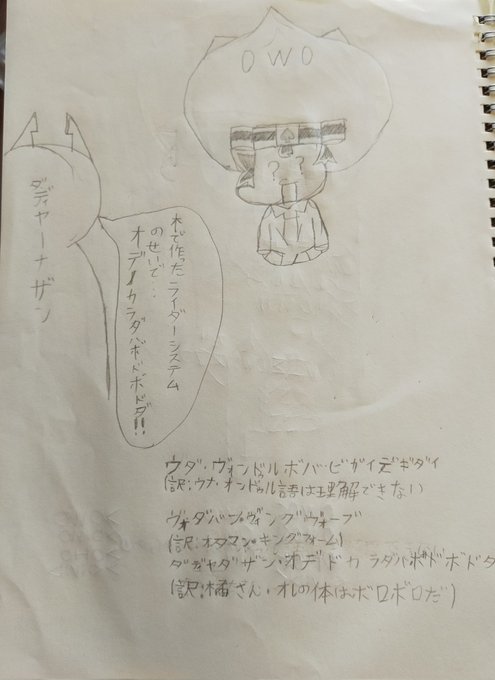 OWO
? ?
ダディヤーナザン
木で作ったライダーシステム
のせいで‥
オデノカラダバボドボドダ!!
ウダ・ヴォンドゥルボバ・ビガイデギダイ
(訳;ウナ・オンドゥル語は理解できない
ヴォダバン・ヴィングヴォーブ
(訳;オタマン・キングフォーム)
ダディヤダザン・オデドカラダバ・ボドボドダ
(訳;橘さん・オレの体はボロボロだ)